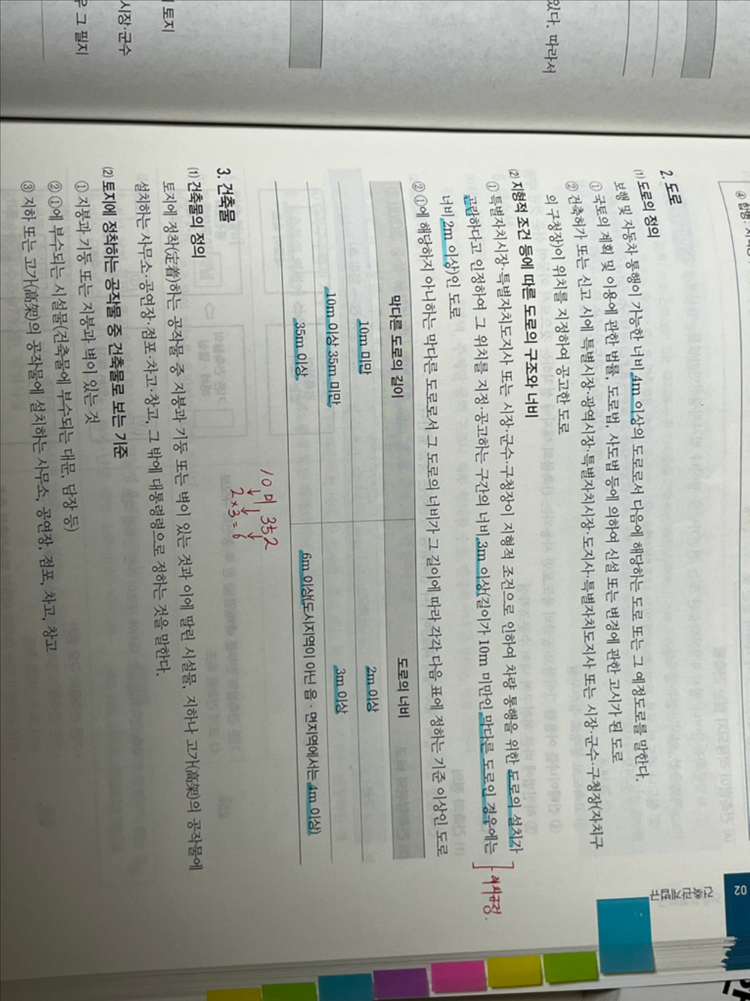 있다. 따라서
토지
시장·군수
그 필지
02
건축관계법규
2. 도로
(1) 도로의 정의
보행 및 자동차 통행이 가능한 너비 4m 이상의 도로로서 다음에 해당하는 도로 또는 그 예정도로를 말한다.
① 국토의 계획 및 이용에 관한 법률, 도로법, 사도법 등에 의하여 신설 또는 변경에 관한 고시가 된 도로
② 건축허가 또는 신고 시에 특별시장·광역시장·특별자치시장·도지사·특별자치도지사 또는 시장·군수·구청장(자치구
의 구청장)이 위치를 지정하여 공고한 도로
(2) 지형적 조건 등에 따른 도로의 구조와 너비
① 특별자치시장·특별자치도지사 또는 시장·군수·구청장이 지형적 조건으로 인하여 차량 통행을 위한 도로의 설치가
곤란하다고 인정하여 그 위치를 지정·공고하는 구간의 너비 3m 이상(길이가 10m 미만인 막다른 도로인 경우에는
너비 2m 이상)인 도로
예외규정.
② ①에 해당하지 아니하는 막다른 도로로서 그 도로의 너비가 그 길이에 따라 각각 다음 표에 정하는 기준 이상인 도로
막다른 도로의 길이 도로의 너비
10m 미만 2m 이상
10m 이상 35m 미만 3m 이상
35m 이상 6m 이상(도시지역이 아닌 읍·면지역에서는 4m 이상)
10미 352
2×3=6
3. 건축물
(1) 건축물의 정의
토지에 정착(定着)하는 공작물 중 지붕과 기둥 또는 벽이 있는 것과 이에 딸린 시설물, 지하나 고가(高架)의 공작물에
설치하는 사무소·공연장·점포·차고·창고, 그 밖에 대통령령으로 정하는 것을 말한다.
(2) 토지에 정착하는 공작물 중 건축물로 보는 기준
① 지붕과 기둥 또는 지붕과 벽이 있는 것
② ①에 부수되는 시설물(건축물에 부수되는 대문, 담장 등)
③ 지하 또는 고가(高架)의 공작물에 설치하는 사무소, 공연장, 점포, 차고, 창고